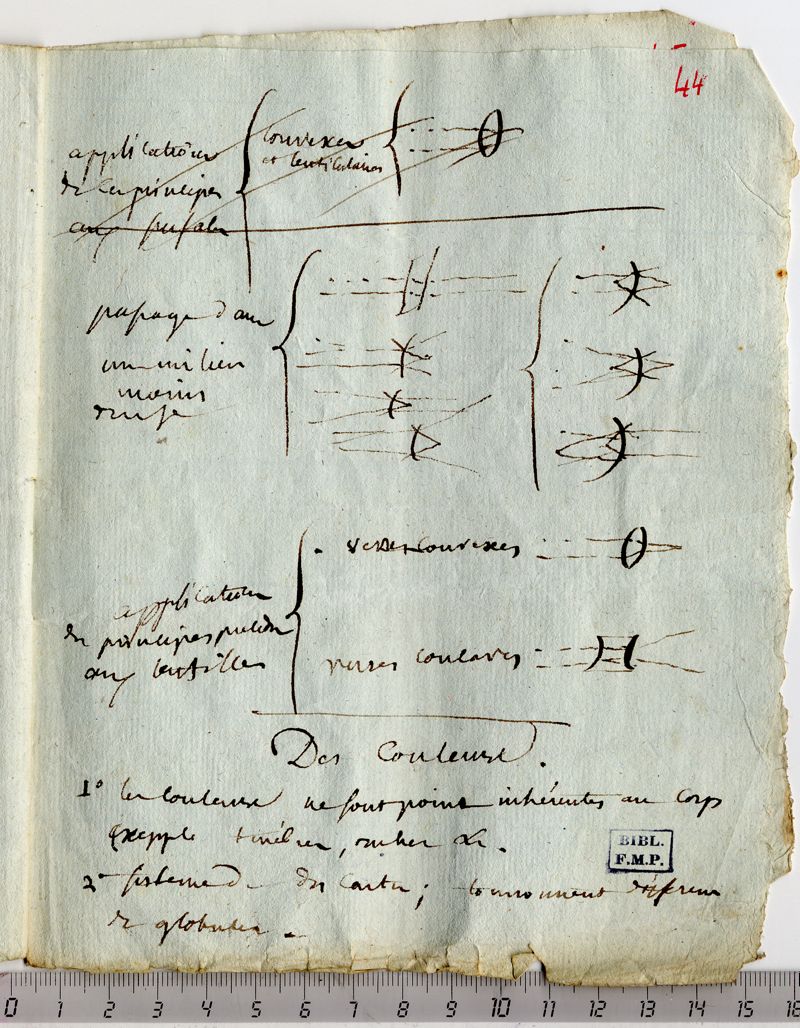 44
applications
de ces principes
aux
convexes
et lenticulaires
passage dans
un milieu
moins
dense
verres convexes
application
des principes précéd
aux lentilles
verres concaves
Des Couleurs.
1° les couleurs ne sont point inhérentes au corps
Exepple
2° sisteme de des cartes; tournoument différent
de globules.
BIBL.
F.M.P.
0 1 2 3 4 5 6 7 8 9 10 11 12 13 14 15 16